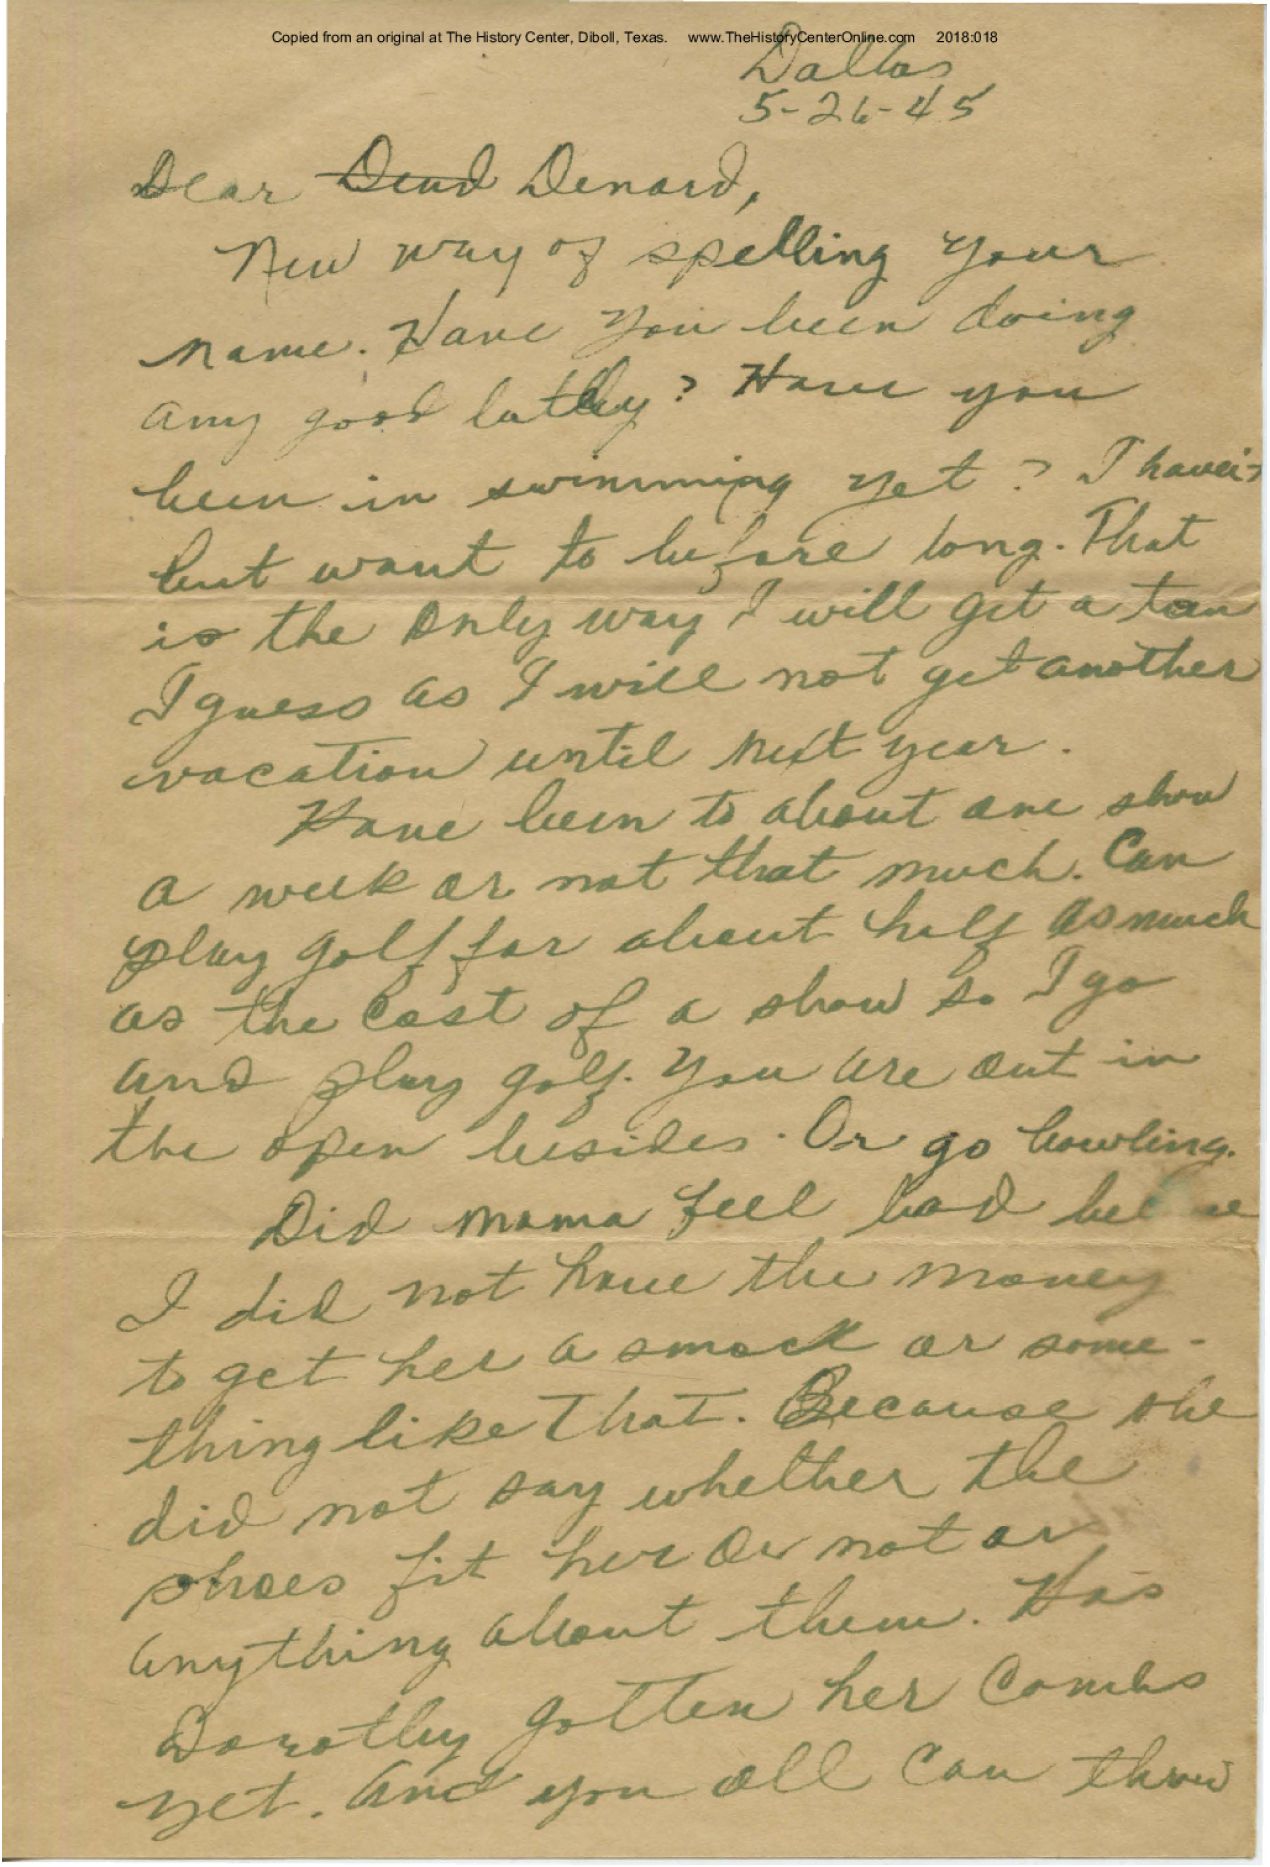 Copied from an original at The History Center, Diboll, Texas. www.TheHistoryCenterOnline.com 2018:018
Dallas
5-26-45
Dear Denard,
New way of spelling your
name. Have you been doing
any good lately? Have you
been in swimming yet? I haven't
but want to before long. That
is the only way I will get a tan
I guess as I will not get another
vacation until next year.
Have been to about one show
a week or not that much. Can
play golf for about half as much
as the cost of a show so I go
and play golf. You are out in
the open besides. Or go bowling.
Did mama feel bad because
I did not have the money
to get her a smock or some-
thing like that. Because she
did not say whether the
shoes fit her or not or
anything about them. Has
Dorothy gotten her combs
yet. And you all can throw